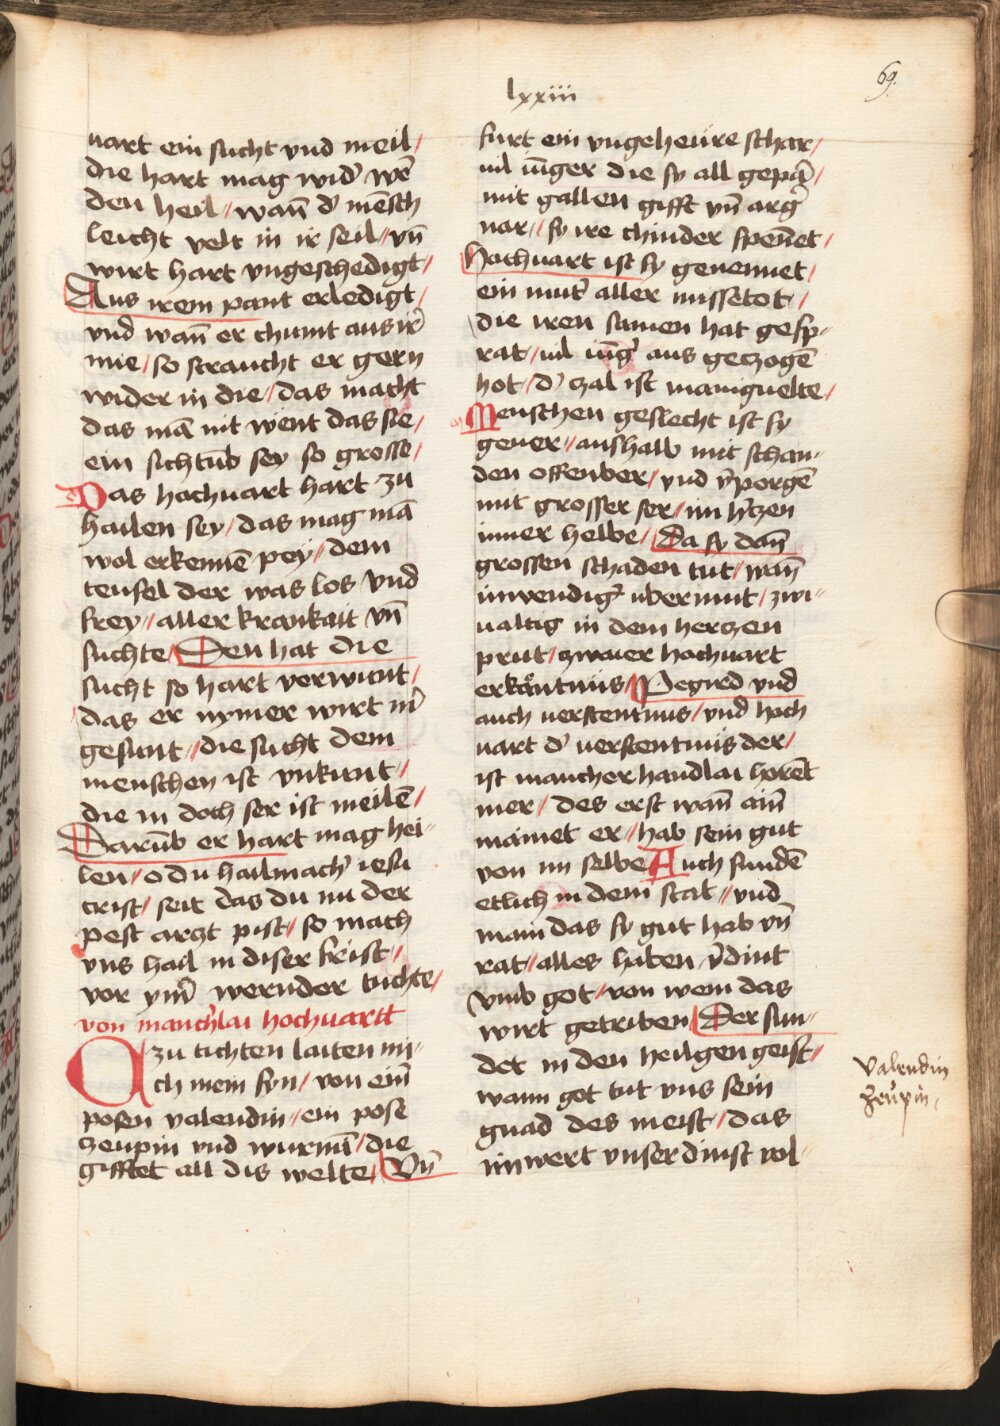 lxxiii
69.
uart ein sucht vnd meil/
die hart mag wid' wē
den heil // wan̄ d' mēsch
leicht velt in ir seil // vn̄
wirt hart vngeschedigt /
Aus irem pant erledigt /
vnd wan̄ er chumt aus ir'
nie / so straucht er gern
wider in die / das macht
das mā nit went das sie /
ein sichtūb sey so grosse /
Das hochuart hart zu
hailen sey / das mag mā
wol erkennē pey / dem
teufel der was los / vnd
frey // aller krankait vn̄
suchte / Den hat die
sucht so hart verwunt /
das er nymer wirt m'
gesunt // die sucht dem
menschen ist vnkunt //
die in doch ser ist meilē /
Darūb er hart mag hei-
len // o du hailmach' iesu
crist / seit das du nu der
pest arczt pist / so mach
vns hail in diser frist //
vor ym̄ wernder tuchte /
von manch'lai hochuartt
A zu tichten laiten mi-
ch mein syn / von eim̄
posen valendin // ein pose
zeupin vnd wurmī / die
gifftet all dis welte / Vn̄
furt ein vngeheüre schar /
uil iūger die sy all gepā' /
mit gallen gifft vn̄ arg'
nar // sy ire chinder spen̄et /
Hochuart ist sy genennet /
ein mut' aller missetot /
die iren samen hat gesp-
rat / uil iūg' aus geczogē
hot / d' zal ist maniguelte /
Menschen geslecht ist sy
geuer // aushalb mit schan-
den offenber / vnd v'porgē
mit grosser ser / im h'tzen
inner helbe / Da sy dan̄
grossen schaden tut / wan̄
inwendig' ubermut / zwi-
ualtig in dem herczen
prut / zwaier hochuart
erkäntnüs / Pegird vnd
auch uerstentnus / vnd hoch
uart d' uerstentnis der /
ist mancher handlai horēt
mer / des erst wan̄ ain̄
mainet er // hab sein gut
von im selbe Auch sundē
etlich in dem stat // vnd
main das sy gut hab vn̄
rat / alles haben v'dint
vmb got / von wem das
wirt getriben / Der sun-
det in den heilgen geist /
wann got tut vns sein
gnad des meist / das
im̄wert vnser dinst vol-
valendin
zeüpin.